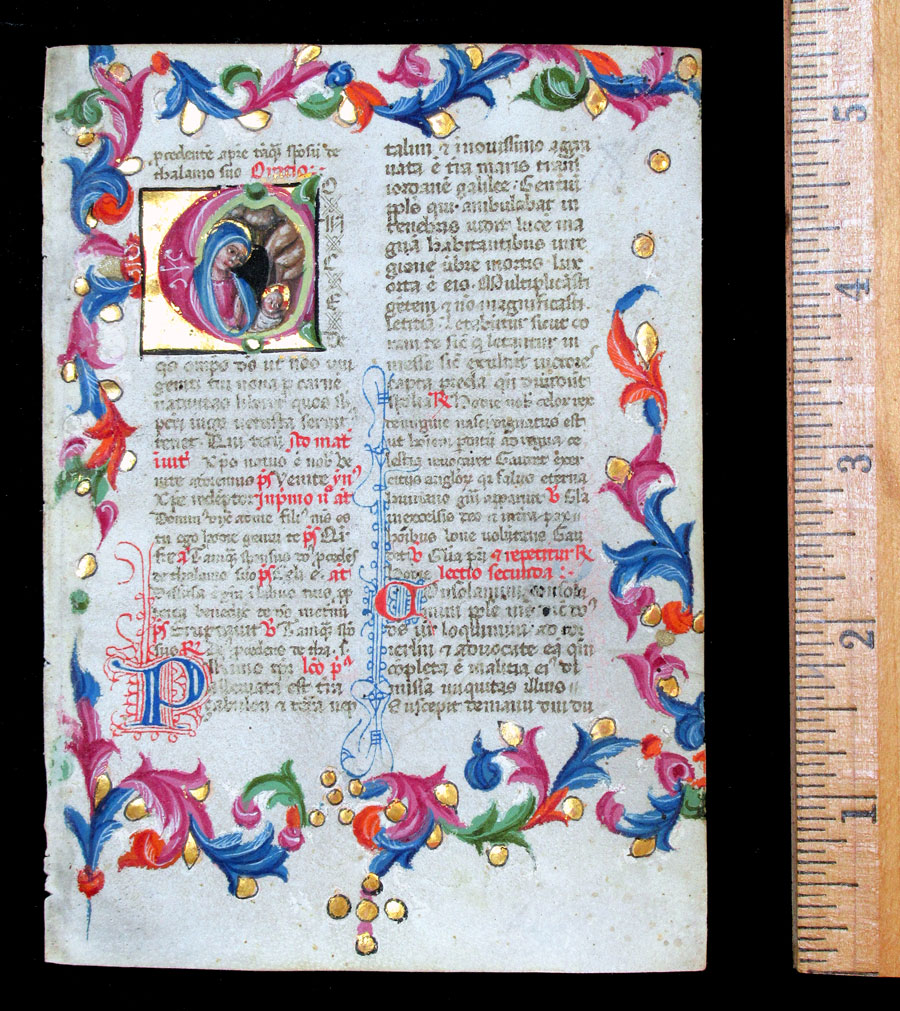 pcedente apre taq̃ sposu te
thalamo suo Oratio:
O
N
C
E
D
E
qs omps ds ut nos uni
geniti tui noua p carne
natiuitas liberet quos sb
iugo uetusta seruit
tenet. Qui tecu.
Xps natus e nob Ve
nite adoremus ps Venite yn
Xpe redeptor In primo n° at
Domin dixit ad me fili meus es
tu ego hodie genui te ps Qua
fre a Tamq sponsus dns procedes
de thalamo suo ps Celi e. at
Diffusa e gra i labiis tuis pp
terea benedixit te ds in eternu
ps Eructauit V Tamq spo
sus R Dns procedes de tha. s.
Primo tpr lco p
alleuiata est tra
zabulon & terra nep
talim & nouissimo aggra
uata e uia maris trans
iordane galilee. Gentiu
ppls qui ambulabat in
tenebris uidit luce ma
gna habitantibus in re
gione ubre mortis lux
orta e eis. Multiplicasti
gente & no magnificasti
letitia. Letabutur sicut co
ram te sic q letantur in
messe sic exultat uictores
capta preda qn diuidut
spolia R Hodie nob celor rex
de uirgine nasci dignatus est
ut hoiem pditu ad regna ce
lestia reuocaret Gaudet exer
citus anglor qa salus eterna
humano gni apparuit V Gla
in excelsis deo & in tra pax i
hoibus bone volutatis Gau
det V Gla pri & repetitur R
Hodie lectio secunda :
Consolamini consola
mini pple ms dic ds
ds ur loquimini ad cor
ierlm & aduocate ea qm
copleta e malitia ei di
missa iniquitas illius
Suscepit de manu dni du
5
4
3
2
1